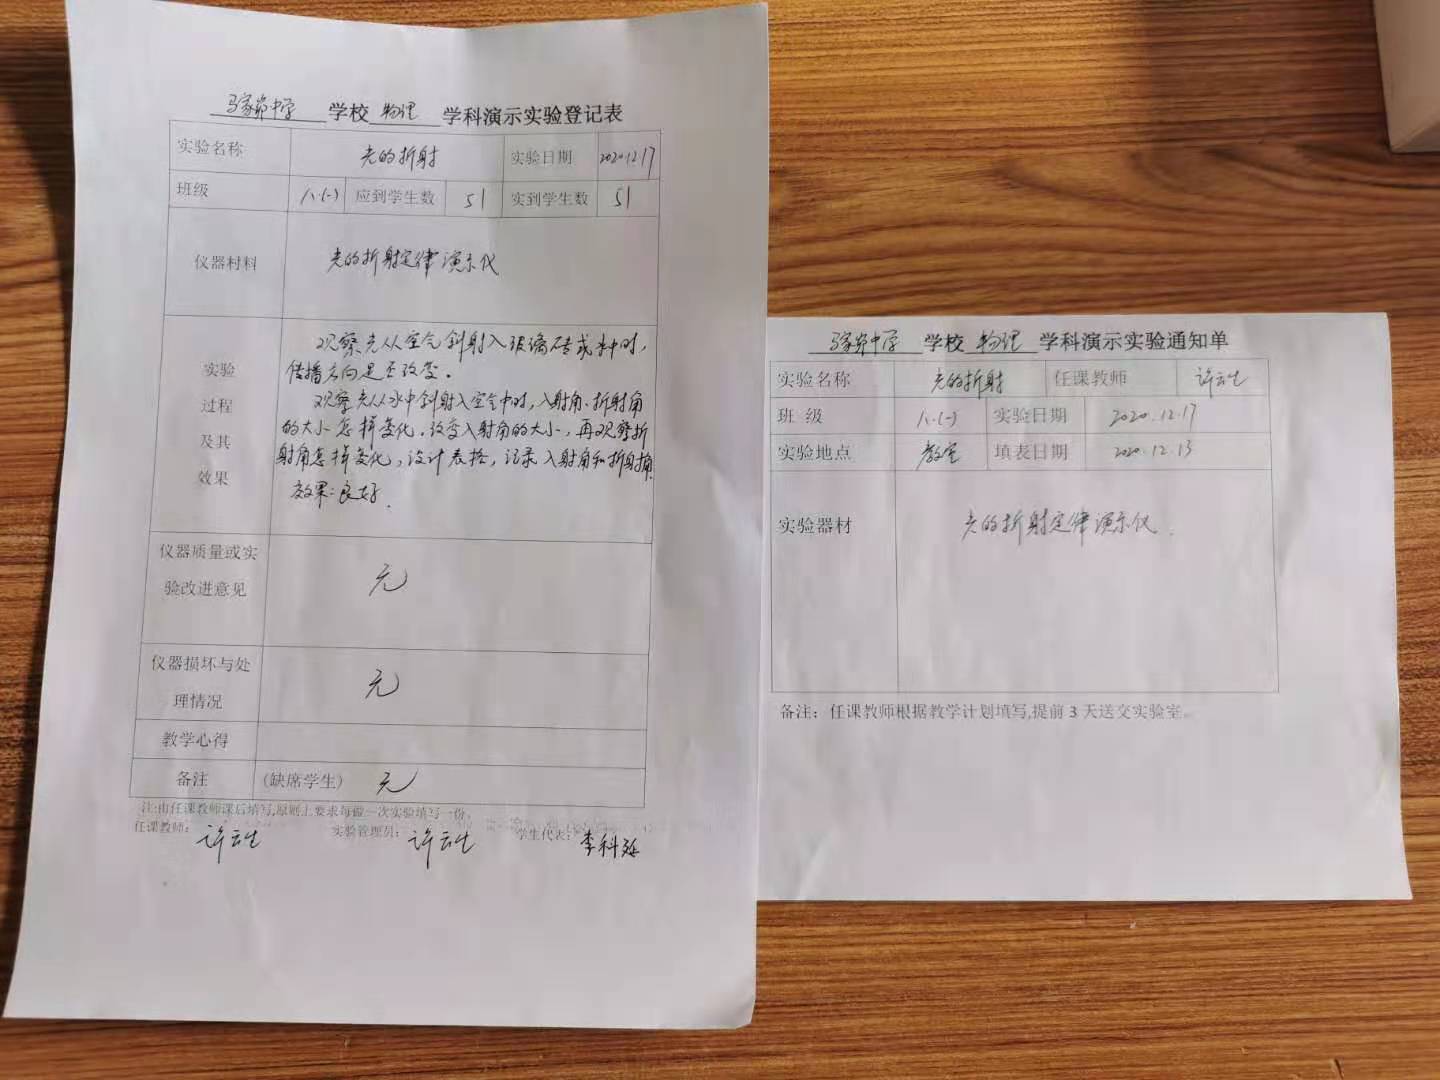 马家岔中学 学校 物理 学科演示实验登记表
实验名称 光的折射 实验日期 2020.12.17
班级 八.(一) 应到学生数 51 实到学生数 51
仪器材料 光的折射定律演示仪
实验过程及其效果
观察光从空气斜射入玻璃砖或水中时,
传播方向是否改变。
观察光从水中斜射入空气中时,入射角、折射角
的大小怎样变化。改变入射角的大小,再观察折
射角怎样变化,设计表格,记录入射角和折射角.
效果:良好.
仪器质量或实
验改进意见 无
仪器损坏与处
理情况 无
教学心得
备注 (缺席学生) 无
注:由任课教师课后填写,原则上要求每做一次实验填写一份。
任课教师: 许云生 实验管理员: 许云生 学生代表: 李科延
马家岔中学 学校 物理 学科演示实验通知单
实验名称 光的折射 任课教师 许云生
班 级 八.(一) 实验日期 2020.12.17
实验地点 教室 填表日期 2020.12.13
实验器材 光的折射定律演示仪.
备注:任课教师根据教学计划填写,提前 3 天送交实验室。